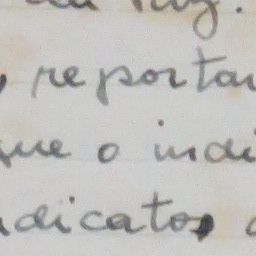 , reportar
que o indi
dicatos